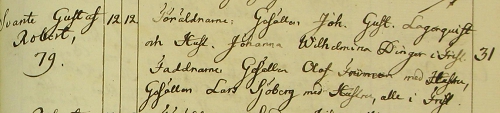 Svante Gustaf 12 12 Föräldrarne: Gesällen Joh. Gust. Lagerquist
Robert, och Hust. Johanna Wilhelmina Dinger i Frisl. 31
79. Faddrarne Gesällen Olof med Hustru,
Gesällen Lars Sjöberg med Hustru, alle i Frisl.